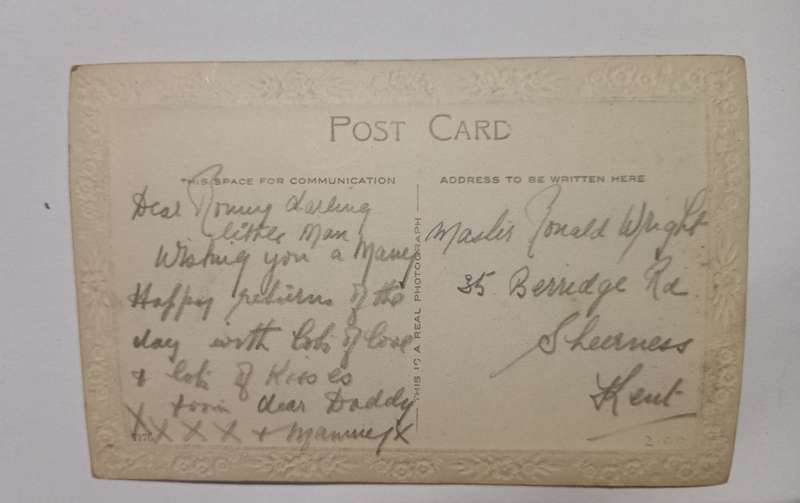 POST CARD
THIS SPACE FOR COMMUNICATION
Dear Ronny darling
little Man
Wishing you a Many
Happy returns of the
day with lots of love
+ lots of Kisses
from dear Daddy
X X X X + Mammy X
THIS IS A REAL PHOTOGRAPH
ADDRESS TO BE WRITTEN HERE
Master Ronald Wright
35 Berridge Rd
Sheerness
Kent
2.00